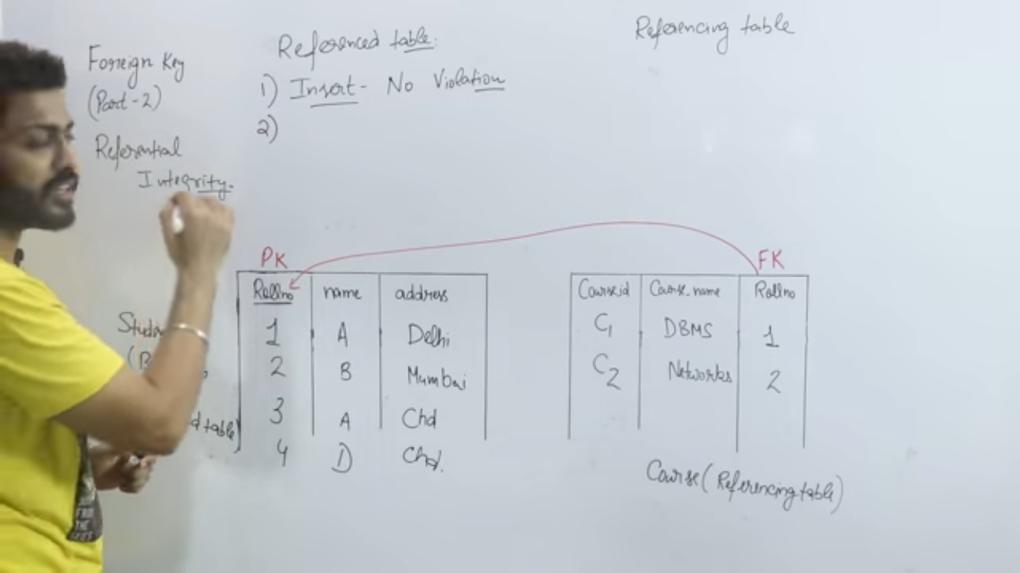 Foreign Key
(Part-2)
Referential
Integrity.
Referenced table:
1) Insert- No Violation
2)
Referencing table
PK
Rollno name address
1 A Delhi
2 B Mumbai
3 A Chd
4 D Chd.
FK
Course.id Course.name Rollno
C1 DBMS 1
C2 Networks 2
Course (Referencing table)
table)